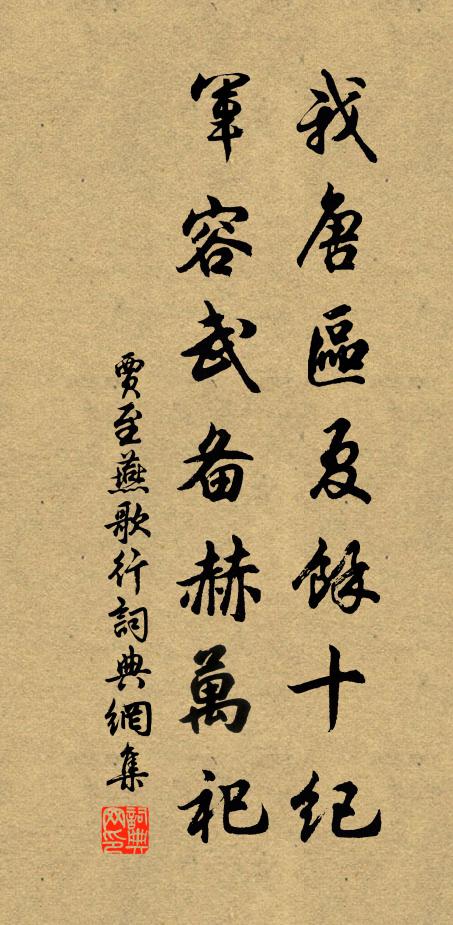 我唐區夏餘十紀
軍容武备赫萬祀
賈至燕歌行詞典網集
詞典网印